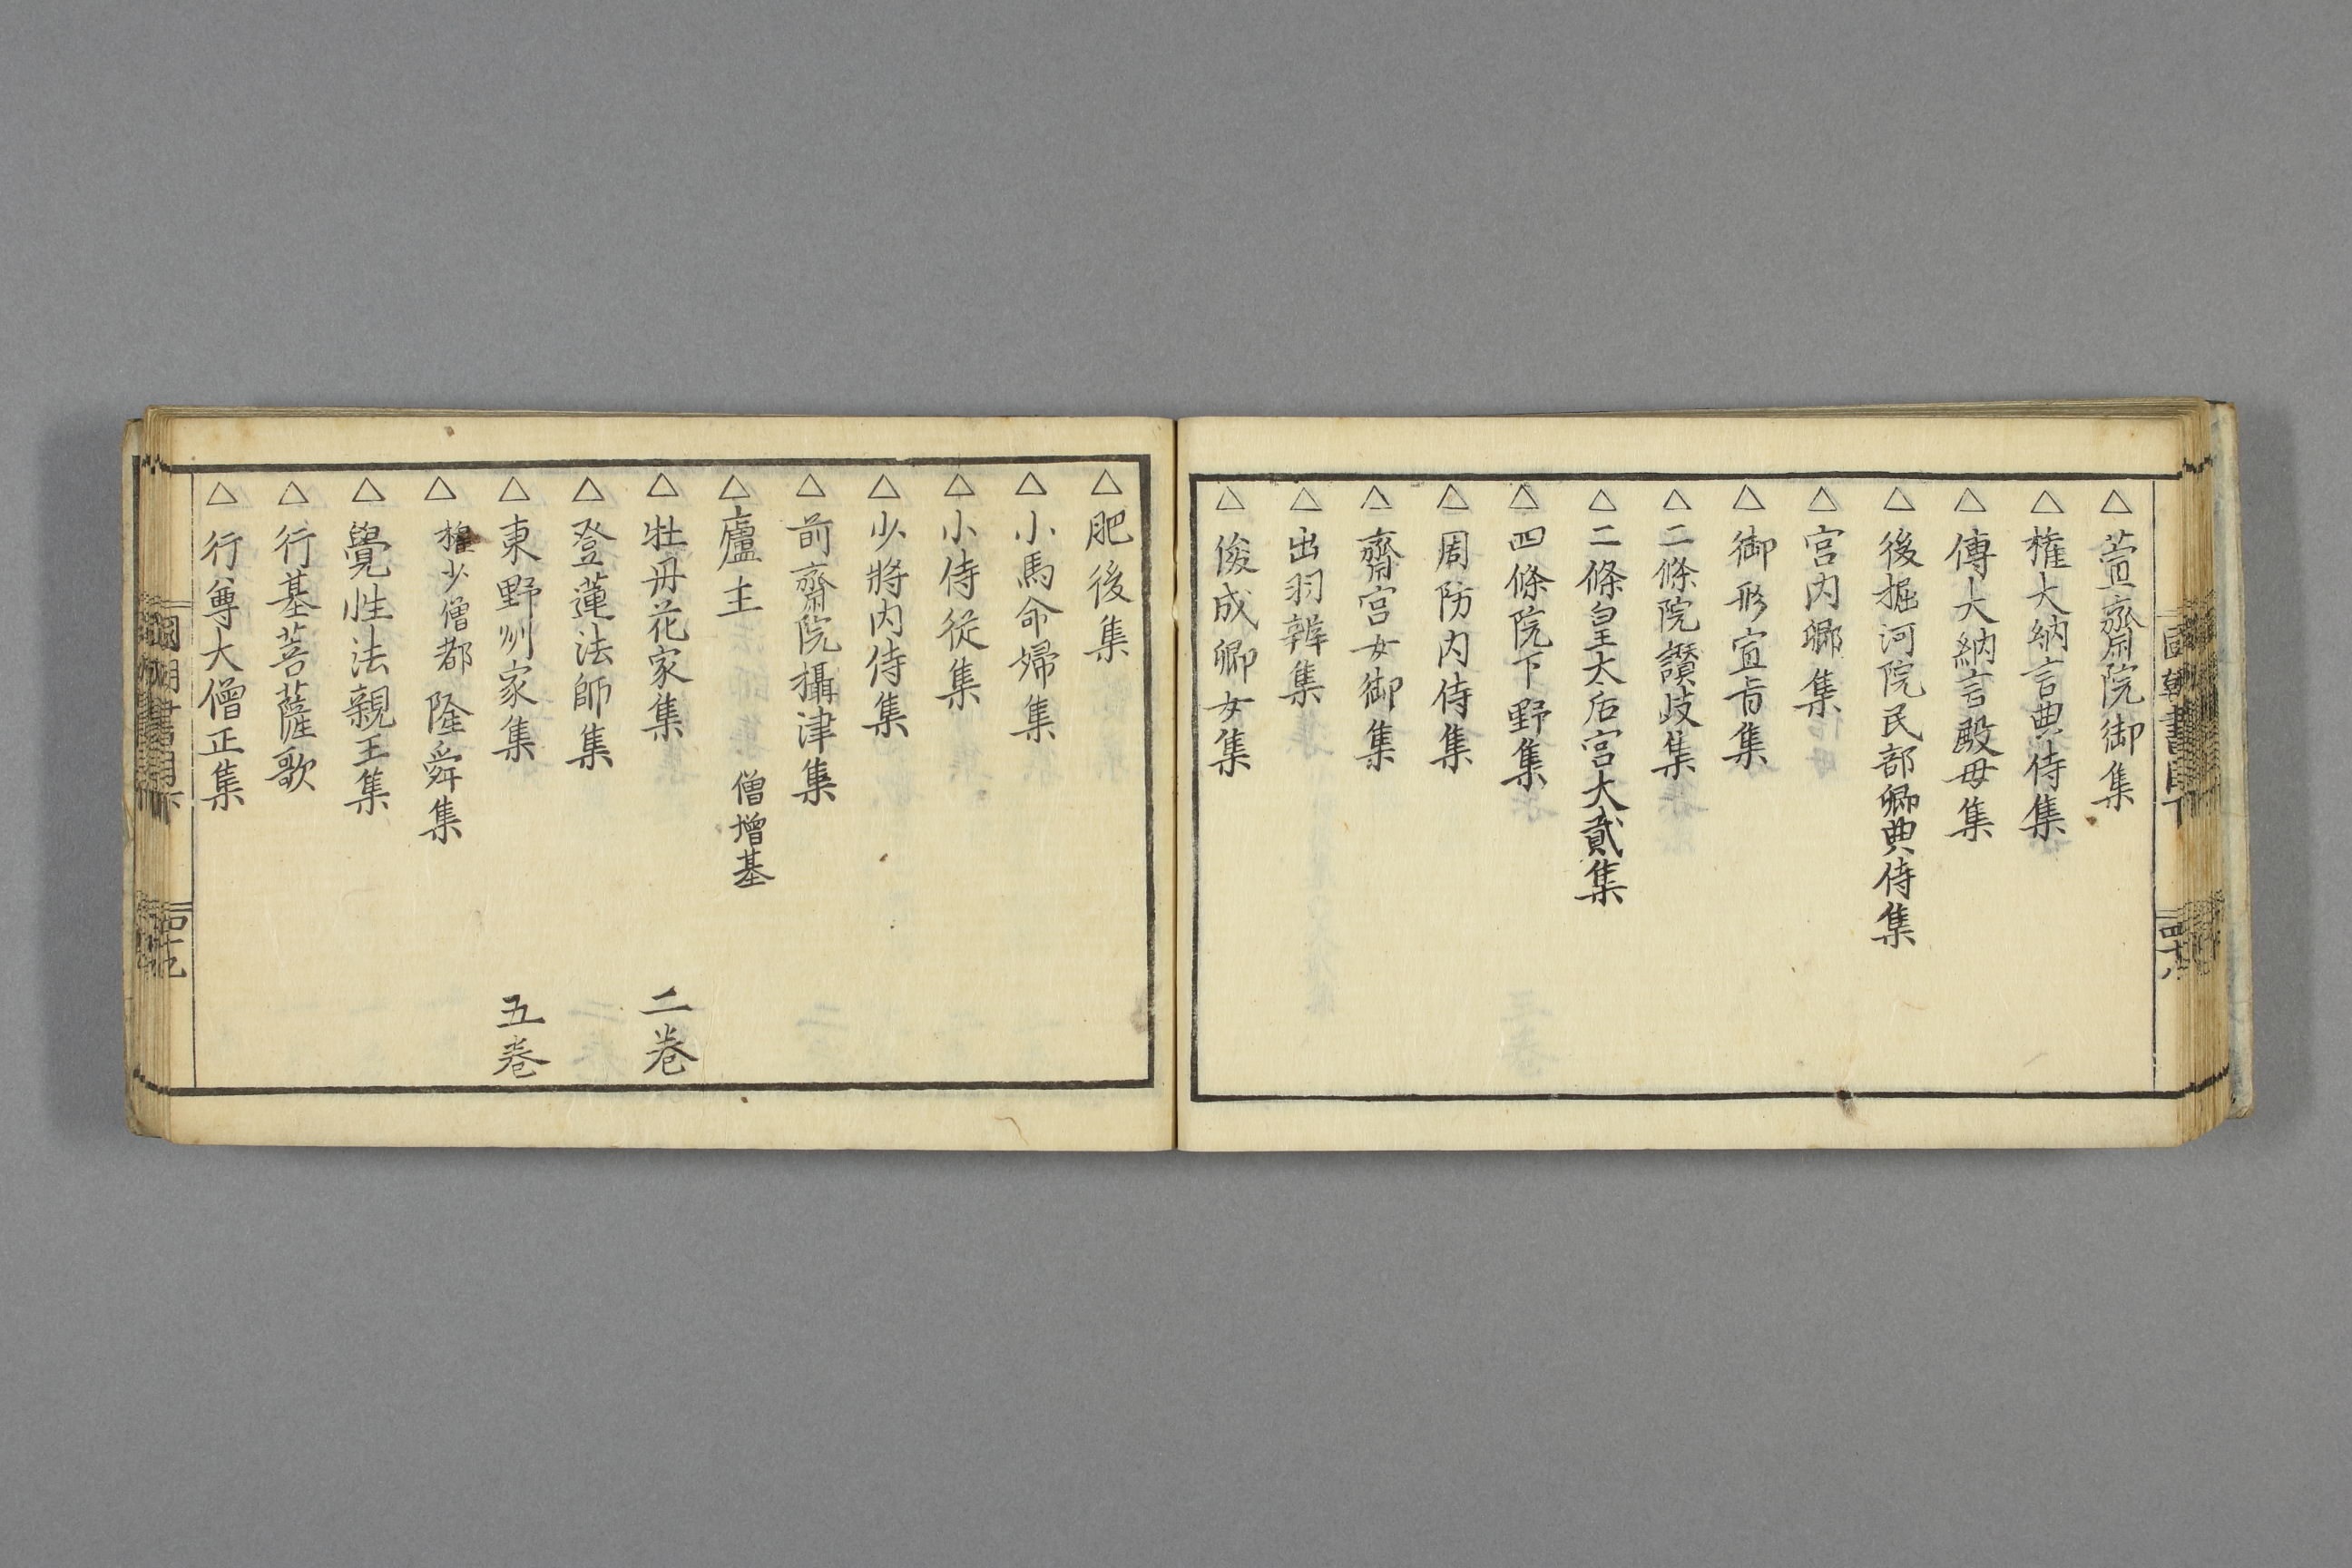 △萱齋院御集
△権大納言典侍集
△傳大納言殿母集
△後掘河院民部卿典侍集
△宮内卿集
△御形宣㫖集
△二條院讃岐集
△二條皇太后宮大貳集
△四條院下野集
△周防内侍集
△齋宮女御集
△出羽辨集
△俊成卿女集
△肥後集
△小馬命婦集
△小侍従集
△少將内侍集
△前齋院攝津集
△廬主 僧增基
△牡丹花家集 二巻
△登蓮法師集
△東野州家集 五巻
△権少僧都隆舜集
△覺性法親王集
△行基菩薩歌
△行尊大僧正集